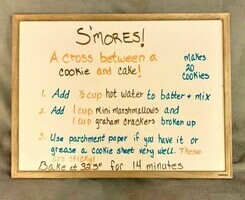 S'MORES!
A cross between a
cookie and cake!
makes
20
cookies
1. Add ½ cup hot water to batter + mix
2. Add 1 cup mini marshmallows and
1 cup graham crackers broken up
3. Use parchment paper if you have it or
grease a cookie sheet very well. These
are sticky!
Bake at 325° for 14 minutes